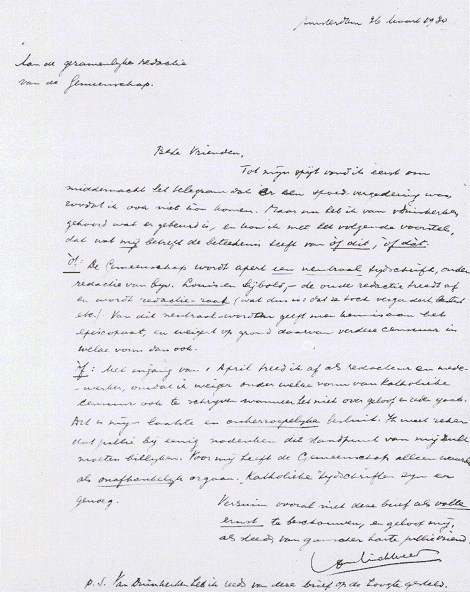 Amsterdam 26 Maart 1930
Aan de gezamenlijke redactie
van de Gemeenschap.
Beste Vrienden,
Tot mijn spijt vond ik eerst om
middernacht het telegram dat er een spoed vergadering was,
zoodat ik ook niet kon komen. Maar nu heb ik van v Duinkerken
gehoord wat er gebeurd is, en kom ik met het volgende voorstel,
dat wat mij betreft de beteekenis heeft van òf dit, òf dàt.
òf: De Gemeenschap wordt apert een neutraal tijdschrift, onder
redactie van bijv. Louis en Lijbolt, - de oude redactie treedt af
en wordt redactie-raad (wat dus is: dat ze toch vergadert
etc.) Van dit neutraal-worden geeft men kennis aan het
episcopaat, en weigert op grond daarvan verdere censuur in
welke vorm dan ook.
òf: Met ingang van 1 April treed ik af als redacteur en mede-
werker, omdat ik weiger onder welke vorm van Katholieke
censuur ook te schrijven wanneer het niet over geloof en zeden gaat.
Dit is mijn laatste en onherroepelijke besluit. Ik weet zeker
dat jullie bij eenig nadenken dit standpunt van mij zult
moeten billijken. Voor mij heeft de Gemeenschap alleen waarde
als onafhankelijk orgaan. Katholieke tijdschriften zijn er
genoeg.
Verzuim vooral niet deze brief als volle
ernst te beschouwen, en geloof mij,
als steeds van ganscher harte jullie vriend.
p.s. Van Duinkerken heb ik reeds van deze brief op de hoogte gesteld.